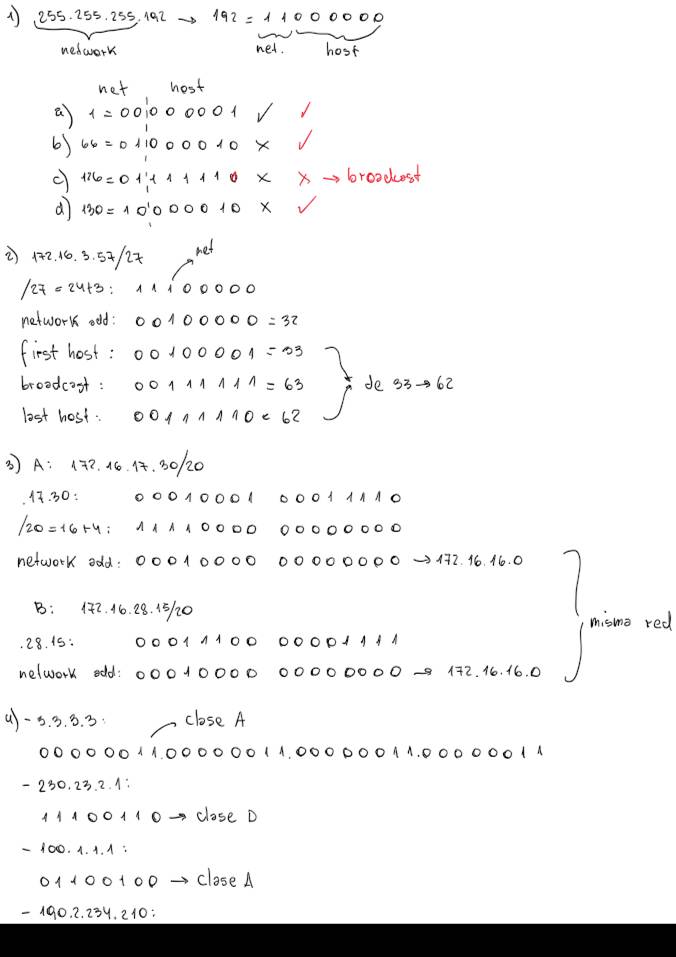 1) 255.255.255.192 → 192 = 1 1 0 0 0 0 0 0
network net. host
net host
a) 1 = 0 0 0 0 0 0 0 1 ✓ ✓
b) 66 = 0 1 0 0 0 0 1 0 × ✓
c) 126 = 0 1 1 1 1 1 1 0 × × → broadcast
d) 130 = 1 0 0 0 0 0 1 0 × ✓
2) 172.16.3.57/27 net
/27 = 24+3: 1 1 1 0 0 0 0 0
network add: 0 0 1 0 0 0 0 0 = 32
first host: 0 0 1 0 0 0 0 1 = 33
broadcast: 0 0 1 1 1 1 1 1 = 63 de 33 → 62
last host: 0 0 1 1 1 1 1 0 = 62
3) A: 172.16.17.30/20
.17.30: 0 0 0 1 0 0 0 1 0 0 0 1 1 1 1 0
/20=16+4: 1 1 1 1 0 0 0 0 0 0 0 0 0 0 0 0
network add: 0 0 0 1 0 0 0 0 0 0 0 0 0 0 0 0 → 172.16.16.0
B: 172.16.28.15/20 misma red
.28.15: 0 0 0 1 1 1 0 0 0 0 0 0 1 1 1 1
network add: 0 0 0 1 0 0 0 0 0 0 0 0 0 0 0 0 → 172.16.16.0
4) - 3.3.3.3: clase A
0 0 0 0 0 0 1 1.0 0 0 0 0 0 1 1.0 0 0 0 0 0 1 1.0 0 0 0 0 0 1 1
- 230.23.2.1:
1 1 1 0 0 1 1 0 → clase D
- 100.1.1.1:
0 1 1 0 0 1 0 0 → clase A
- 190.2.234.210: